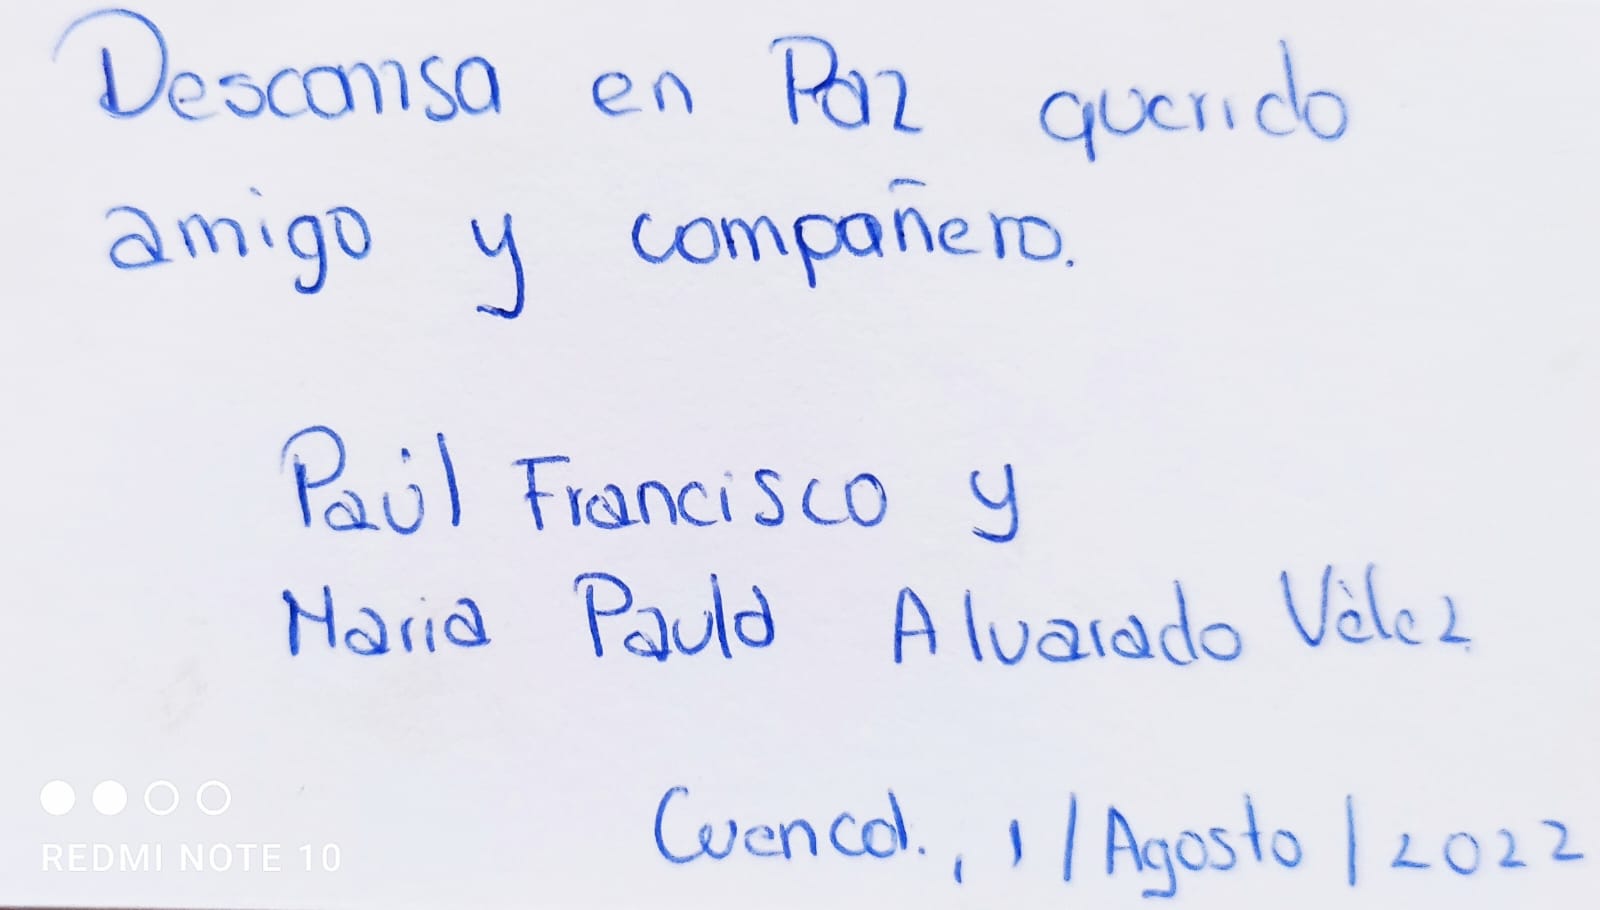 Descansa en Paz querido
amigo y compañero.
Paúl Francisco y
Maria Paula Alvarado Vèlez
Cuenca., 1/Agosto/2022
REDMI NOTE 10